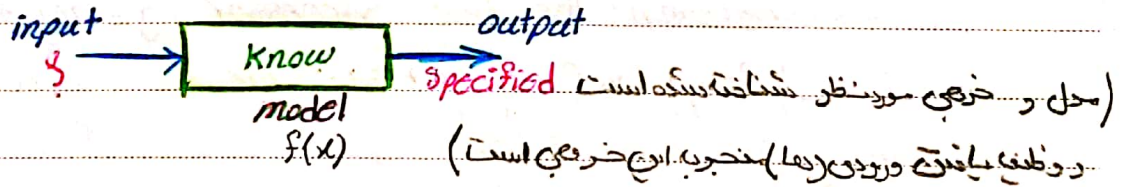 input
output
؟
Know
specified
model
f(x)
(مدل و خروجی مورد نظر شناخته شده است
و وظیفه یافتن ورودی (ها) منجر به این خروجی است)